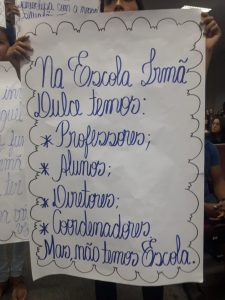 Na Escola Irmã
Dulce temos:
* Professores;
* Alunos;
* Diretores;
* Coordenadores
Mais, não temos Escola.